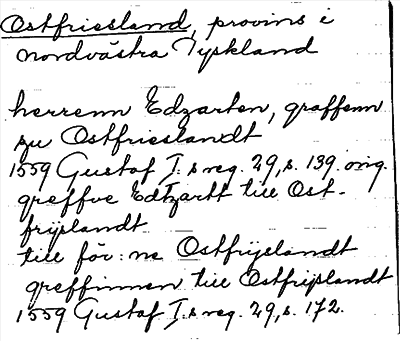 Ostfriesland, provins i
nordvästra Tyskland
herrenn Edzarten, graffenn
zu Ostfrieslandt
1559 Gustaf I:s reg. 29, s. 139. orig.
greffve Edtzartt till Ost-
frijslandt
till för:ne Ostfrijslandt
greffinnen till Ostfrijslandt
1559 Gustaf I:s reg. 29, s. 172.